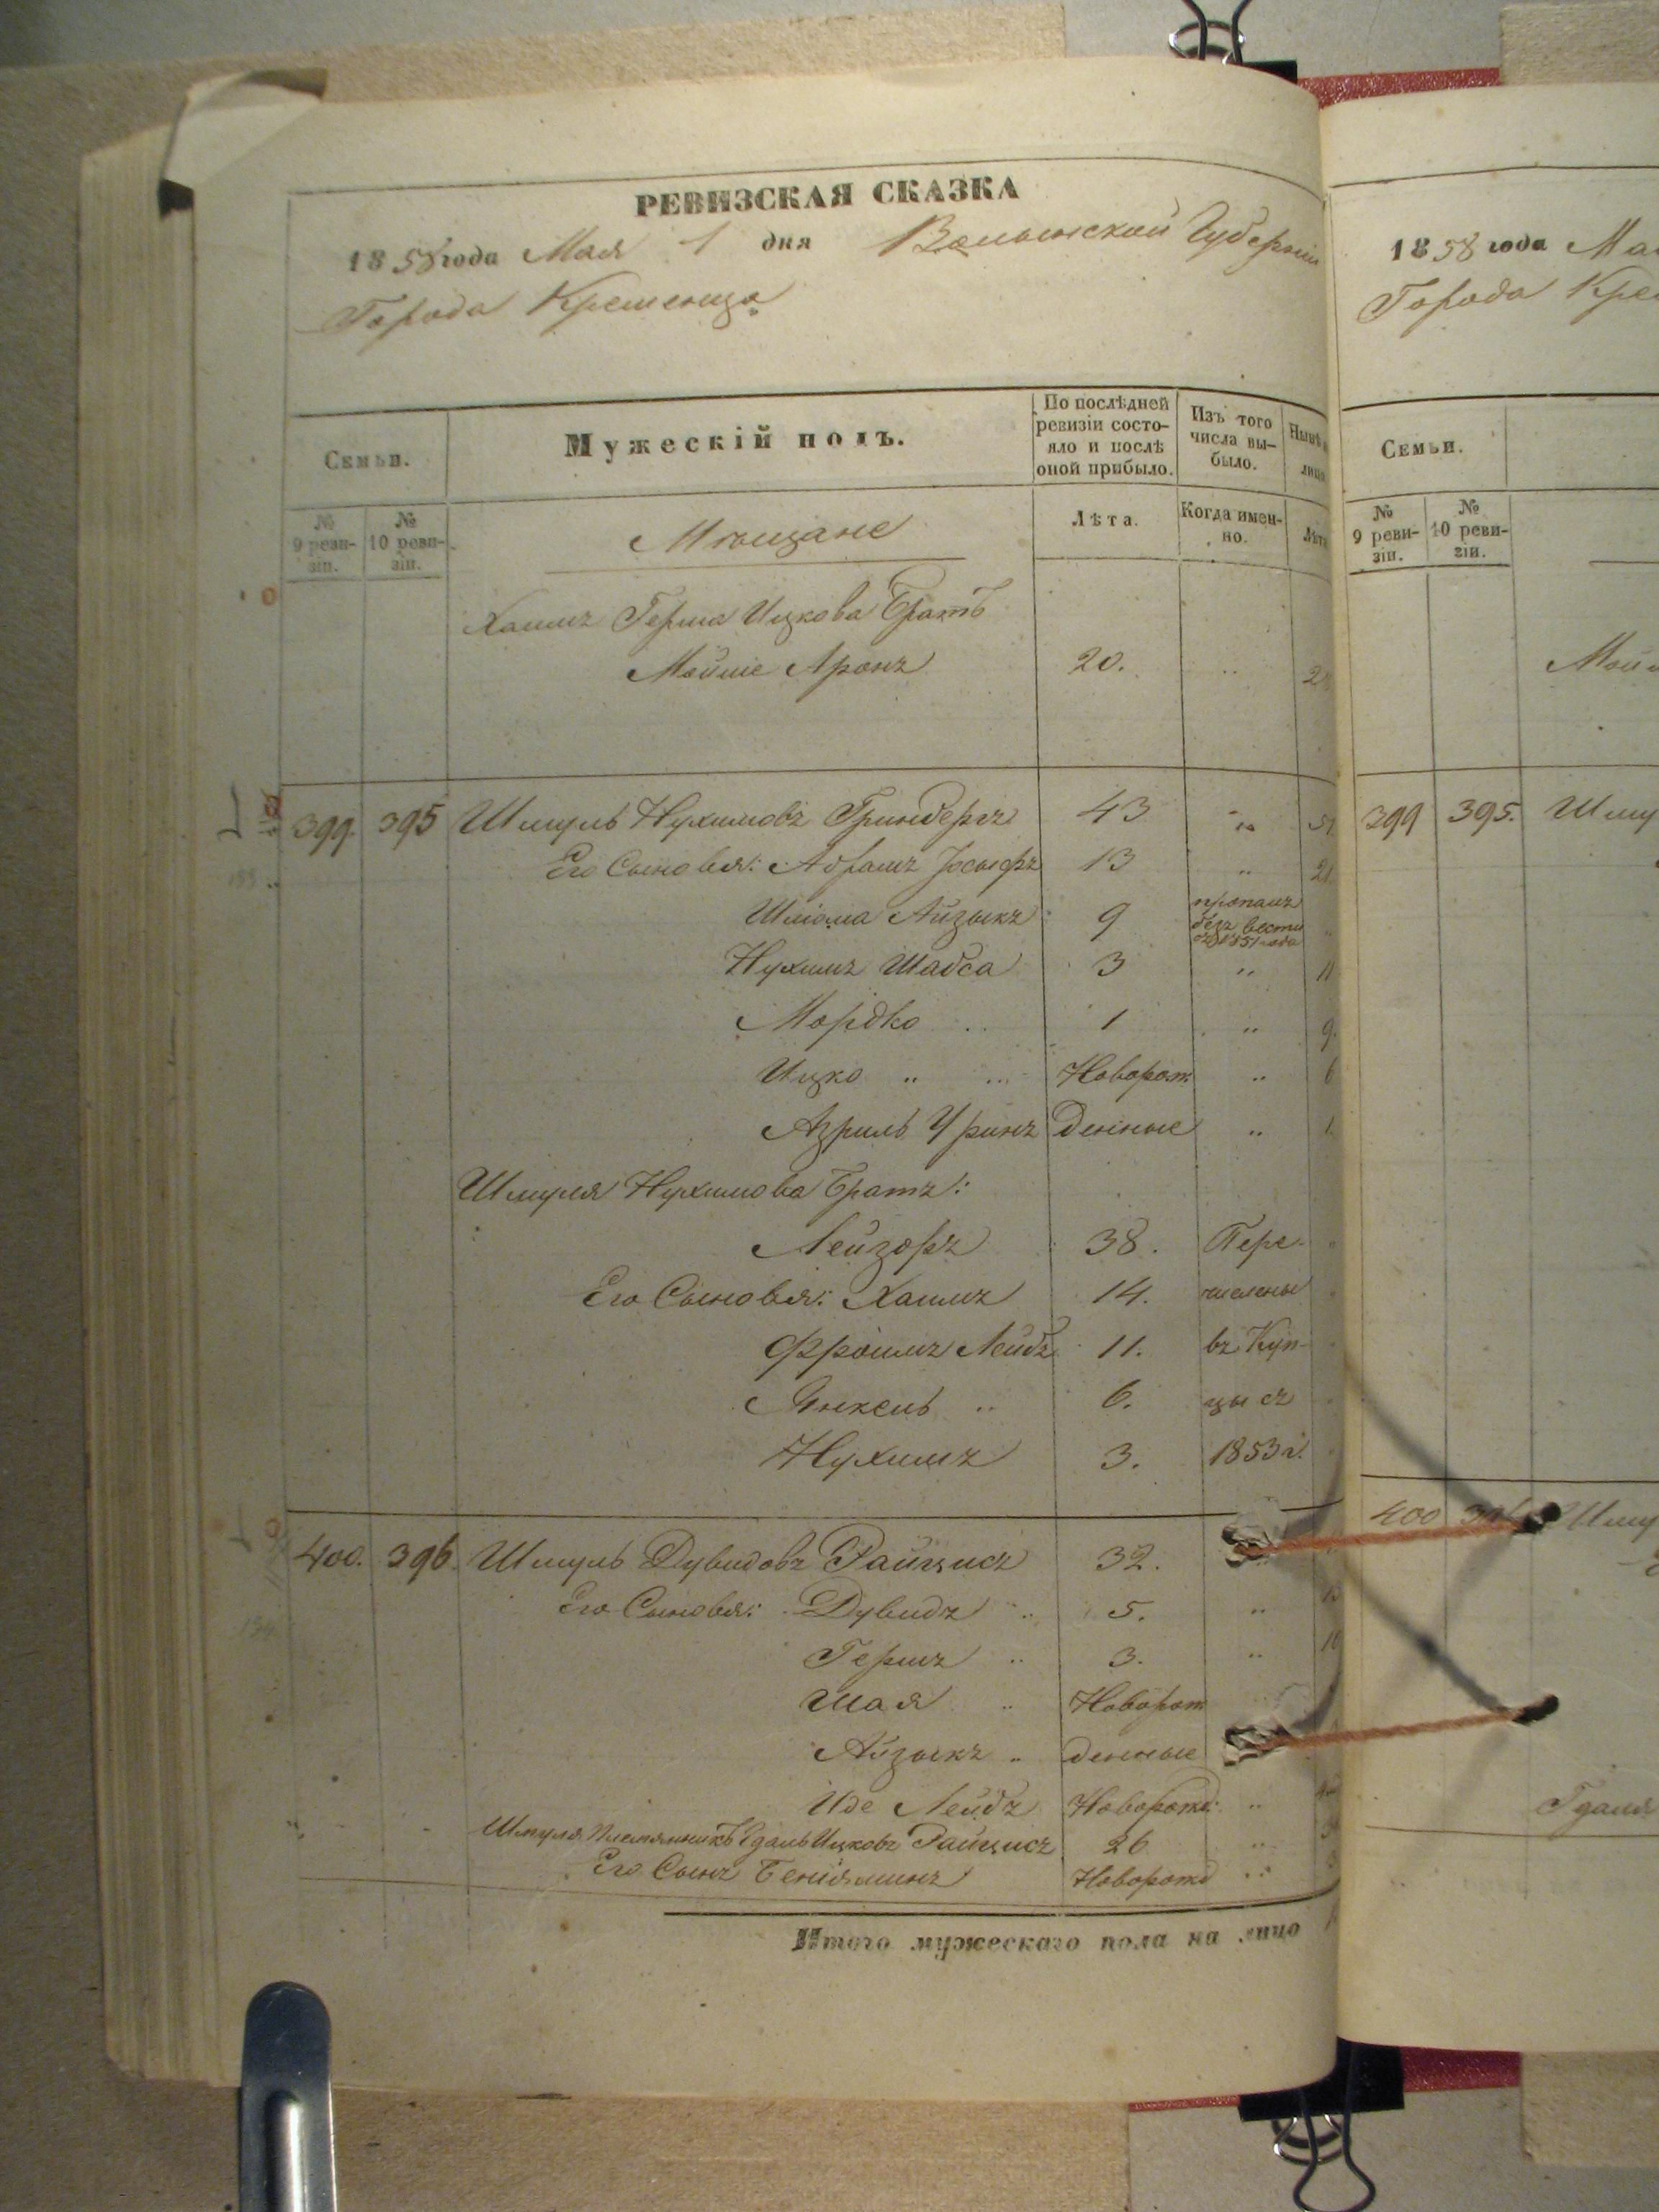 РЕВИЗСКАЯ СКАЗКА
1858 года Мая 1 дня Волынской Губернии
Города Кременца
Семьи.
Мужескій полъ.
По послѣдней ревизіи состо-
яло и послѣ оной прибыло.
Изъ того числа вы-
было.
Нынѣ
лицо
№ 9 реви-
зіи.
№ 10 реви-
зіи.
Мѣщане
Лѣта.
Когда имен-
но.
Лѣта
Хаимъ Герша Ицкова Братъ
Мойше Аронъ 20. "
399. 395 Шмуль Нухимовъ Гринбергъ 43 " 51
Его Сыновья: Абрамъ Іосыфъ 13 " 21
Шліома Айзыкъ 9 пропалъ безъ вести съ 1851 года "
Нухимъ Шабса 3 " 11
Мордко " 1 " 9.
Ицко " " Новорож " 6
Азриль Уринъ денные " 1.
Шмуля Нухимова Братъ:
Лейзоръ 38. Пере-
Его Сыновья: Хаимъ 14. численны
Фроимъ Лейбъ 11. въ Куп-
Янкель " 6. цы съ
Нухимъ 3. 1853 г.
400. 396. Шмуль Дувидовъ Райцисъ 32.
Его Сыновья: Дувидъ " 5. " 13
Гершъ " 3. "
Шая " Новорож
Айзыкъ " денные
Иде Лейбъ Новорожд: "
Шмуля Племянникъ Гдаль Ицковъ Райцисъ 26 "
Его Сынъ Беніяминъ Новорожд "
Итого мужескаго пола на лицо
1858 года Ма
Города Кре
Семьи.
№ 9 реви-
зіи.
№ 10 реви-
зіи.
Мой
399 395. Шму
400 Шму
Гдаля